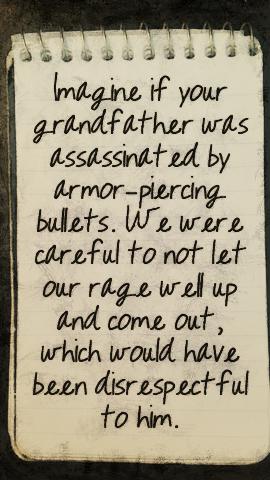 Imagine if your
grandfather was
assassinated by
armor-piercing
bullets. We were
careful to not let
our rage well up
and come out,
which would have
been disrespectful
to him.